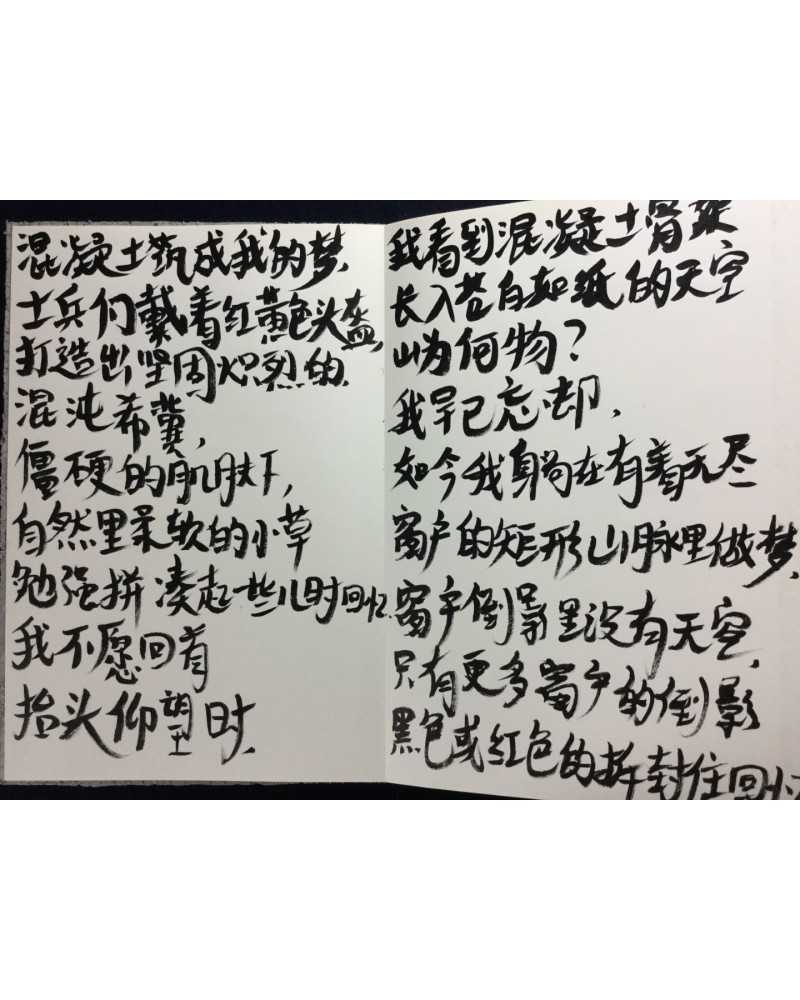 混凝土筑成我的梦,
士兵们戴着红黄色头盔,
打造出坚固炽烈的
混沌希冀,
僵硬的肌肤下,
自然里柔软的小草
勉强拼凑起一些儿时回忆.
我不愿回首
抬头仰望时,
我看到混凝土骨架
长入苍白如纸的天空
山为何物?
我早已忘却,
如今我躺在有着无尽
窗户的矩形山脉里做梦,
窗户倒影里没有天空,
只有更多窗户的倒影
黑色或红色的拆封住回忆